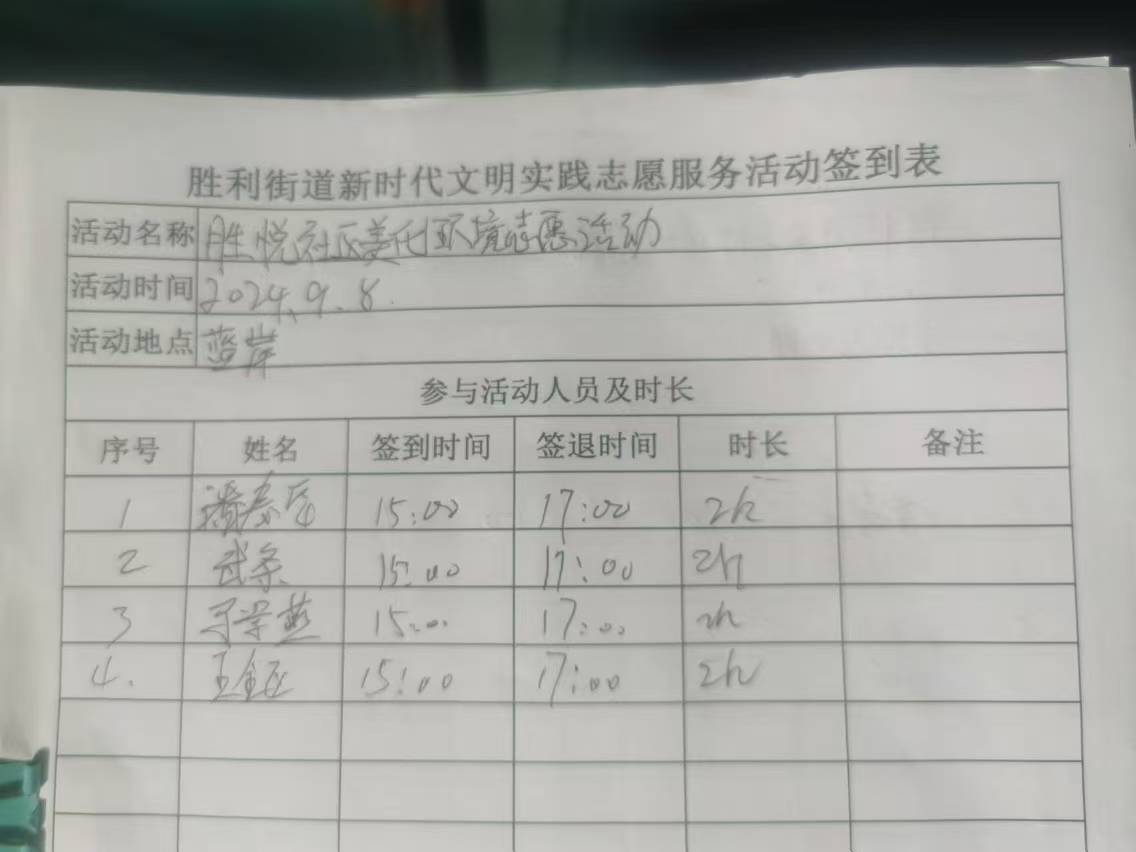 胜利街道新时代文明实践志愿服务活动签到表
活动名称 胜悦社区美化环境志愿活动
活动时间 2024.9.8.
活动地点 蓝岸
参与活动人员及时长
序号 姓名 签到时间 签退时间 时长 备注
1 15:00 17:00 2h
2 15:00 17:00 2h
3 15:00 17:00 2h
4. 15:00 17:00 2h